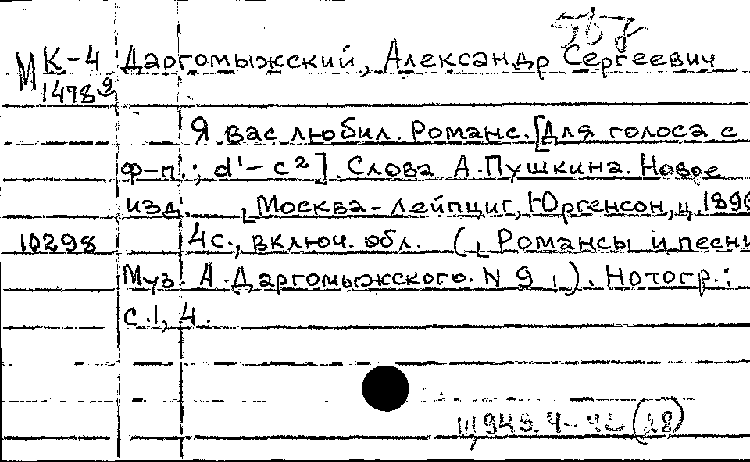 МК-4 Даргомыжский, Александр Сергеевич
1478
Я вас любил. Романс. [Для голоса с
ф-п.; d¹-c²]. Слова А. Пушкина. Новое
изд. Москва-Лейпциг, Юргенсон, ц. 189
10298 4с., включ. обл. (Романсы и песни
Муз. А. Даргомыжского. N 9). Нотогр.:
с. 1, 4.
Щ949.4-4 (28)